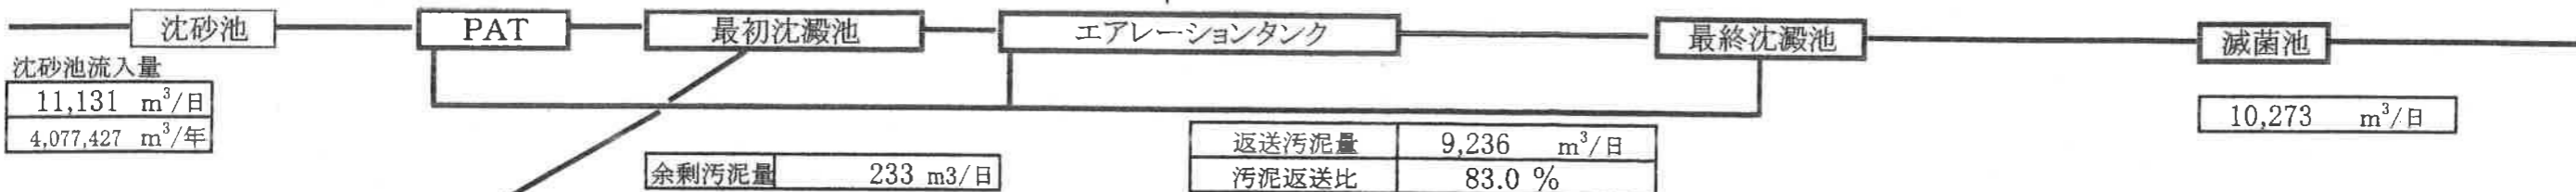 沈砂池 PAT 最初沈澱池 エアレーションタンク 最終沈澱池 滅菌池
沈砂池流入量
11,131 m³/日
4,077,427 m³/年
10,273 m³/日
返送汚泥量 9,236 m³/日
余剰汚泥量 233 m3/日
汚泥返送比 83.0 %